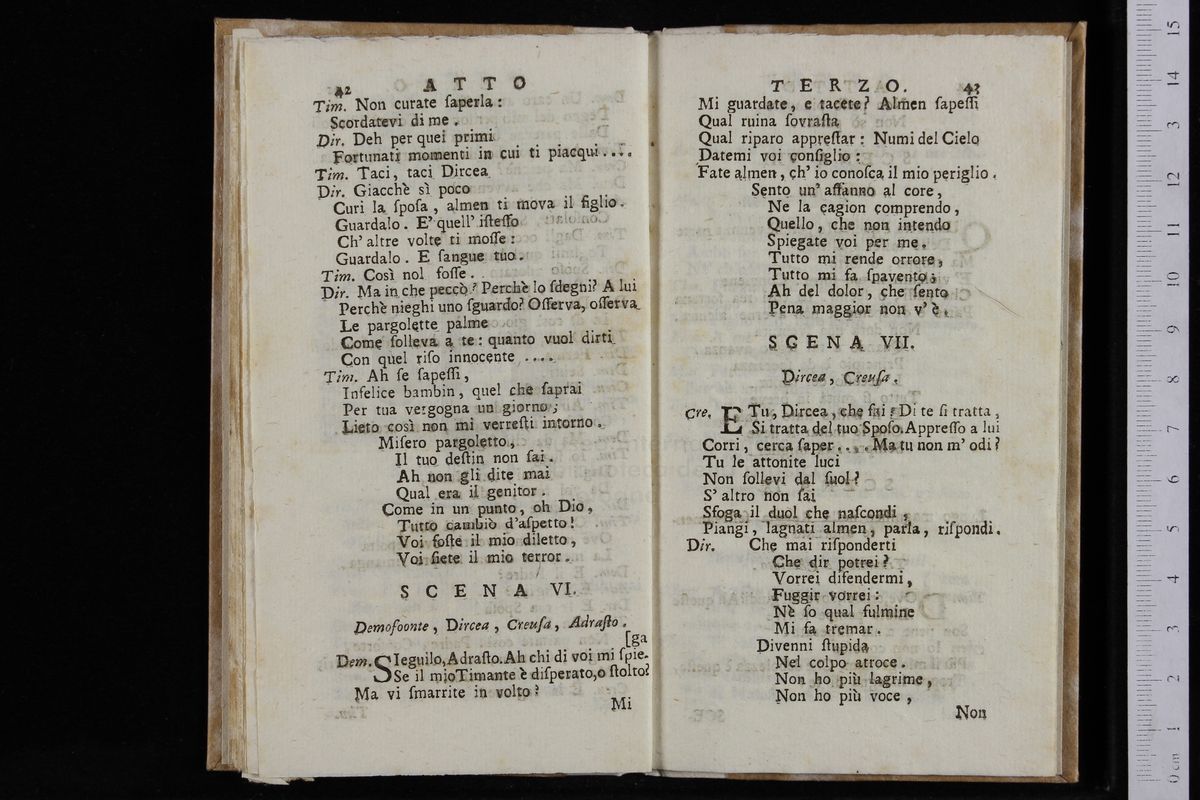 42 ATTO
Tim. Non curate ſaperla:
Scordatevi di me.
Dir. Deh per quei primi
Fortunati momenti in cui ti piacqui....
Tim. Taci, taci Dircea
Dir. Giacchè sì poco
Curi la ſpoſa, almen ti mova il figlio.
Guardalo. E' quell' iſteſſo
Ch' altre volte ti moſſe:
Guardalo. E ſangue tuo.
Tim. Così nol foſſe.
Dir. Ma in che peccò? Perchè lo ſdegni? A lui
Perchè nieghi uno ſguardo? Oſſerva, oſſerva
Le pargolette palme
Come ſolleva a te: quanto vuol dirti
Con quel riſo innocente ....
Tim. Ah ſe ſapeſſi,
Infelice bambin, quel che ſaprai
Per tua vergogna un giorno;
Lieto così non mi verreſti intorno.
Miſero pargoletto,
Il tuo deſtin non ſai.
Ah non gli dite mai
Qual era il genitor.
Come in un punto, oh Dio,
Tutto cambiò d'aſpetto!
Voi foſte il mio diletto,
Voi ſiete il mio terror.
SCENA VI.
Demofoonte, Dircea, Creuſa, Adraſto.
[ga
Dem. SIeguilo, Adraſto. Ah chi di voi mi ſpie-
Se il mio Timante è diſperato, o ſtolto?
Ma vi ſmarrite in volto?
Mi
TERZO. 43
Mi guardate, e tacete? Almen ſapeſſi
Qual ruina ſovraſta
Qual riparo appreſtar: Numi del Cielo
Datemi voi conſiglio:
Fate almen, ch' io conoſca il mio periglio.
Sento un' affanno al core,
Ne la cagion comprendo,
Quello, che non intendo
Spiegate voi per me.
Tutto mi rende orrore,
Tutto mi fa ſpavento;
Ah del dolor, che ſento
Pena maggior non v' è.
SCENA VII.
Dircea, Creuſa.
Cre. E Tu, Dircea, che fai? Di te ſi tratta,
Si tratta del tuo Spoſo. Appreſſo a lui
Corri, cerca ſaper.... Ma tu non m' odi?
Tu le attonite luci
Non ſollevi dal ſuol?
S' altro non ſai
Sfoga il duol che naſcondi,
Piangi, lagnati almen, parla, riſpondi.
Dir. Che mai riſponderti
Che dir potrei?
Vorrei difendermi,
Fuggir vorrei:
Nè ſo qual fulmine
Mi fa tremar.
Divenni ſtupida
Nel colpo atroce.
Non ho più lagrime,
Non ho più voce,
Non